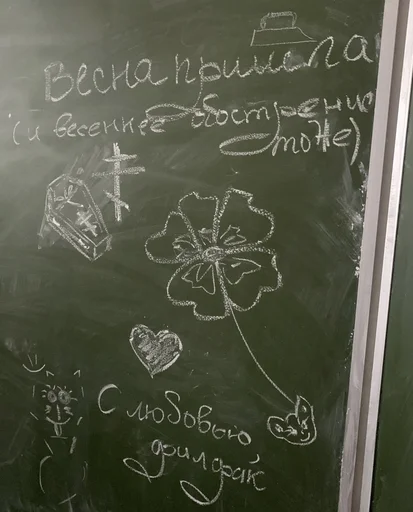 Весна пришла
(и весеннее обострение
тоже)
С любовью
филфак